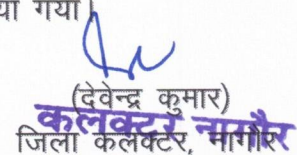 या गया।
(देवेन्द्र कुमार)
कलक्टर, नागौर
जिला कलेक्टर, नागौर